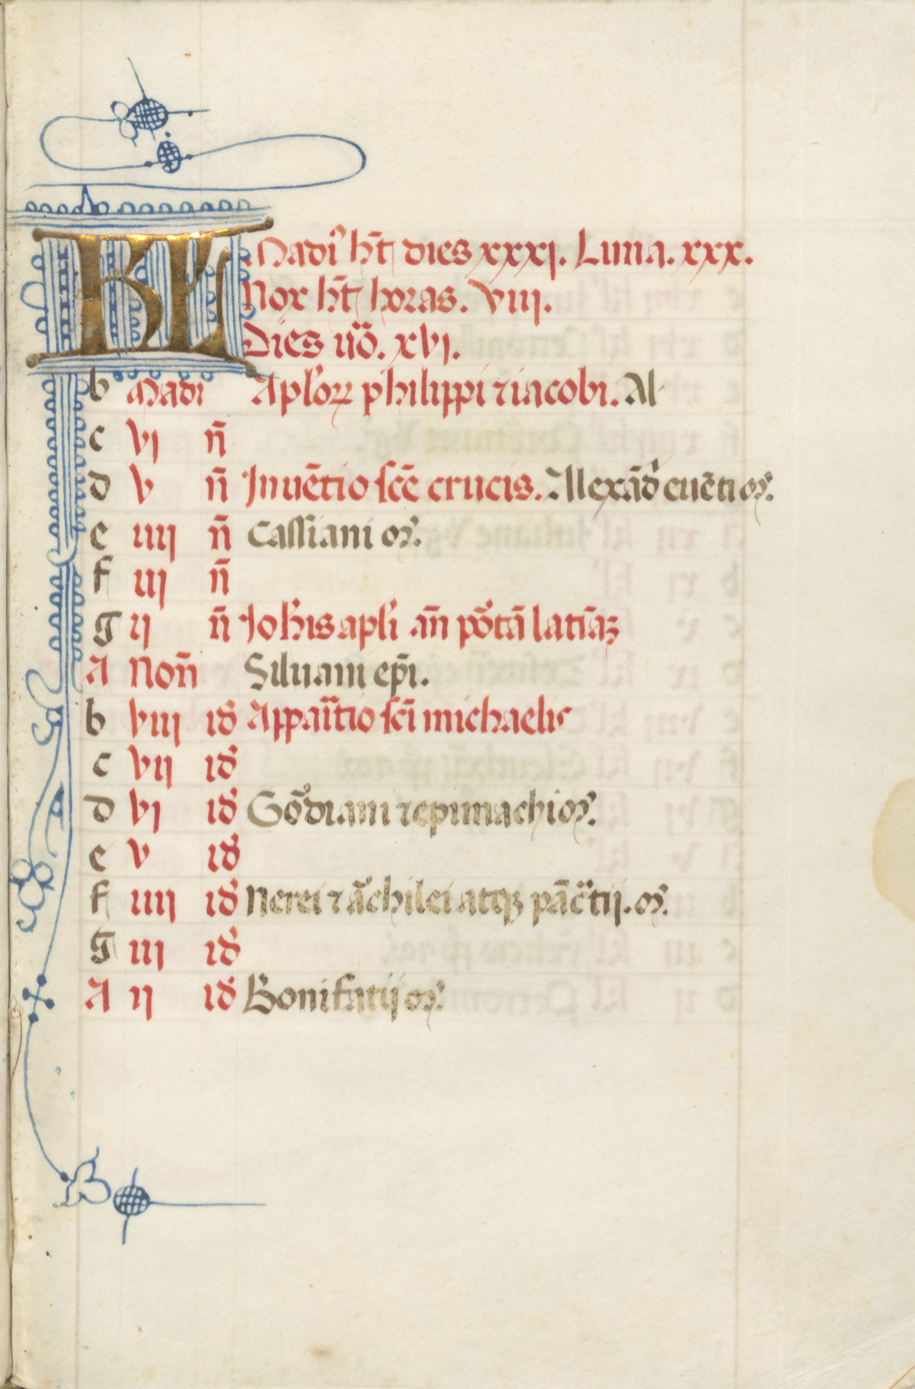 KL Madiꝰ hn̄t dies xxxj. Luna. xxx.
Nox hn̄t horas. viij.
Dies uō. xvj.
b Madi Aplōꝝ philippi ⁊ iacobi. Al
c vj n̄
d v n̄ Inuētio scē crucis. Alexādꝰ euēti oꝝ.
e iiij n̄ Cassiani oꝝ.
f iij n̄
g ij n̄ Iohīs apli an̄ pōtā latinā
A Non̄ Siluani epī.
b viij id̄ Appaīitio scī michaelis
c vij id̄
d vj id̄ Gōdiani ⁊ epimachi oꝝ.
e v id̄
f iiij id̄ Nerei ⁊ āchilei atqꝫ pācītij. oꝝ.
g iij id̄
A ij id̄ Bonifatij oꝝ.